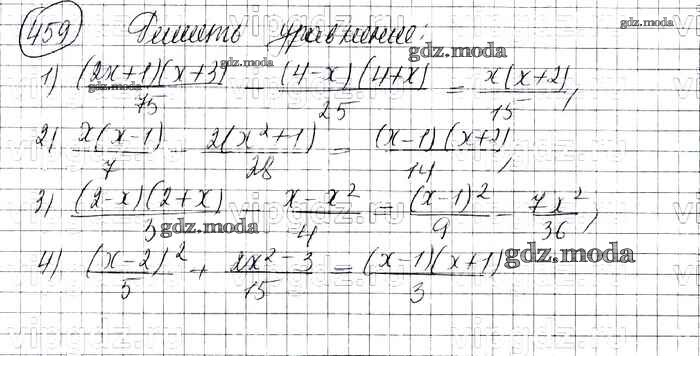 459 Решить уравнение:
1) (2x+1)(x+3)/75 - (4-x)(4+x)/25 = x(x+2)/15,
2) x(x-1)/7 - 2(x²+1)/28 = (x-1)(x+2)/14,
3) (2-x)(2+x)/3 - x-x²/4 = (x-1)²/9 - 7x²/36,
4) (x-2)²/5 + 2x²-3/15 = (x-1)(x+1)/3
gdz.moda
gdz.moda
gdz.moda
gdz.moda
gdz.moda
gdz.moda
gdz.moda
gdz.moda
vipgdz.ru